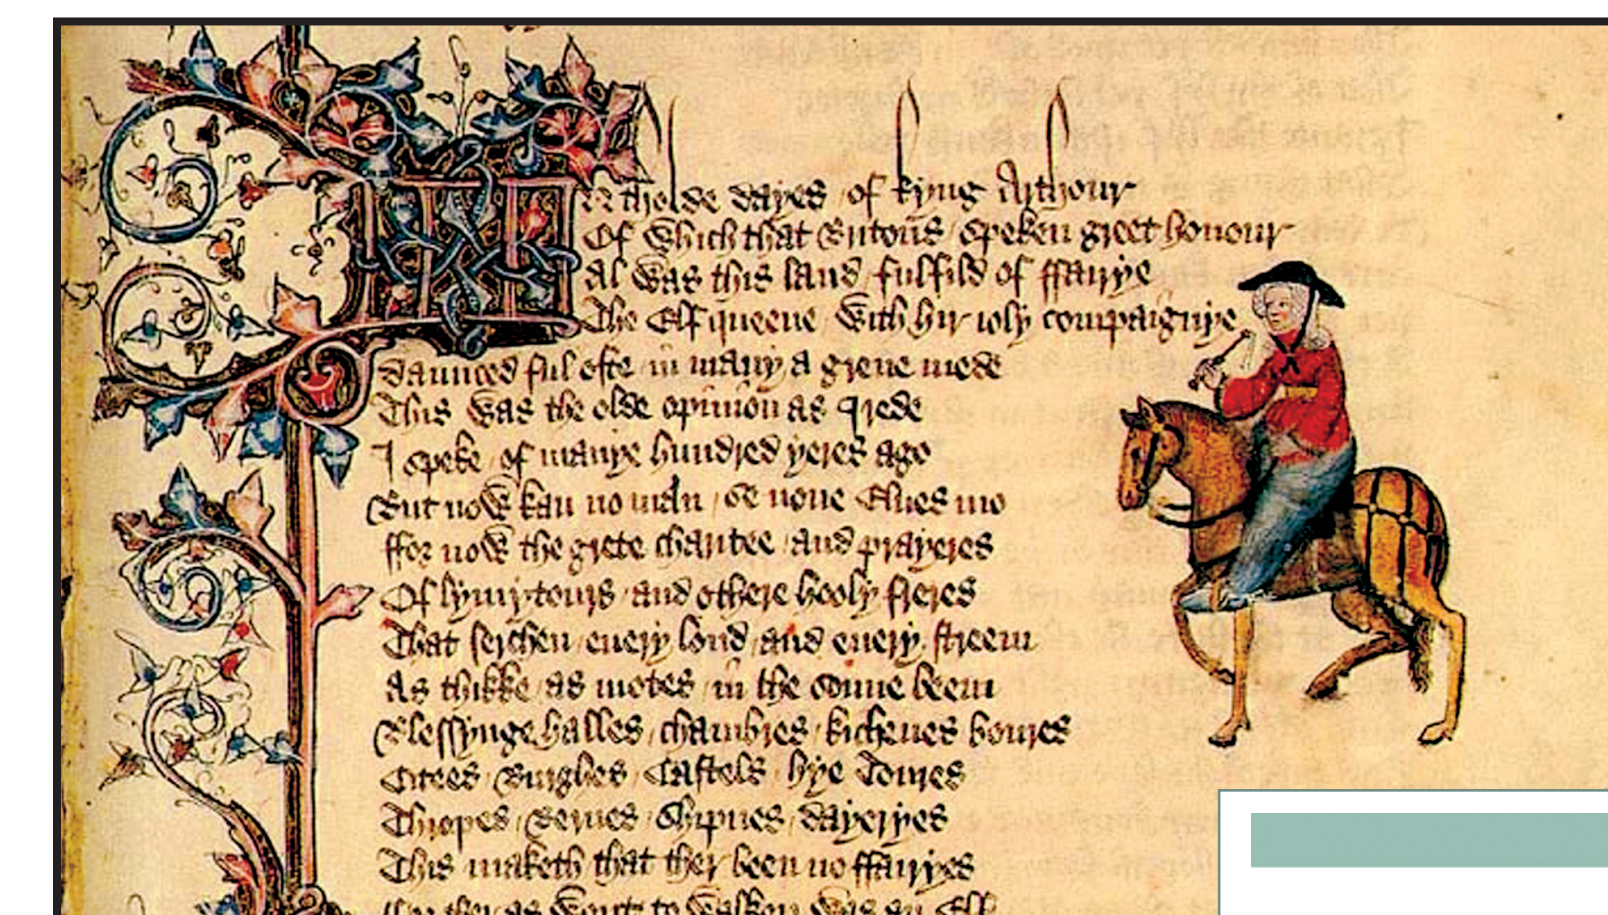 In tholde dayes / of kyng Arthour
Of which that Britons / speken greet honour
Al was this land / fulfild of ffairye
The Elf queene / with hir ioly compaignye
Daunced ful ofte / in many a grene mede
This was the olde opinion as I rede
I speke / of manye hundred yeres ago
But now kan no man / se none Elues mo
ffor now the grete charitee / and prayeres
Of lymytours / and othere hooly freres
That serchen / euery lond / and euery streem
As thikke / as motes / in the sonne beem
Blessynge halles / chambres / kichenes boures
Citees / Burghes / Castels / hye Toures
Thropes / Bernes / Shipnes / dayeryes
This maketh that ther been no ffairyes
ffor ther as wont to walken was an Elf